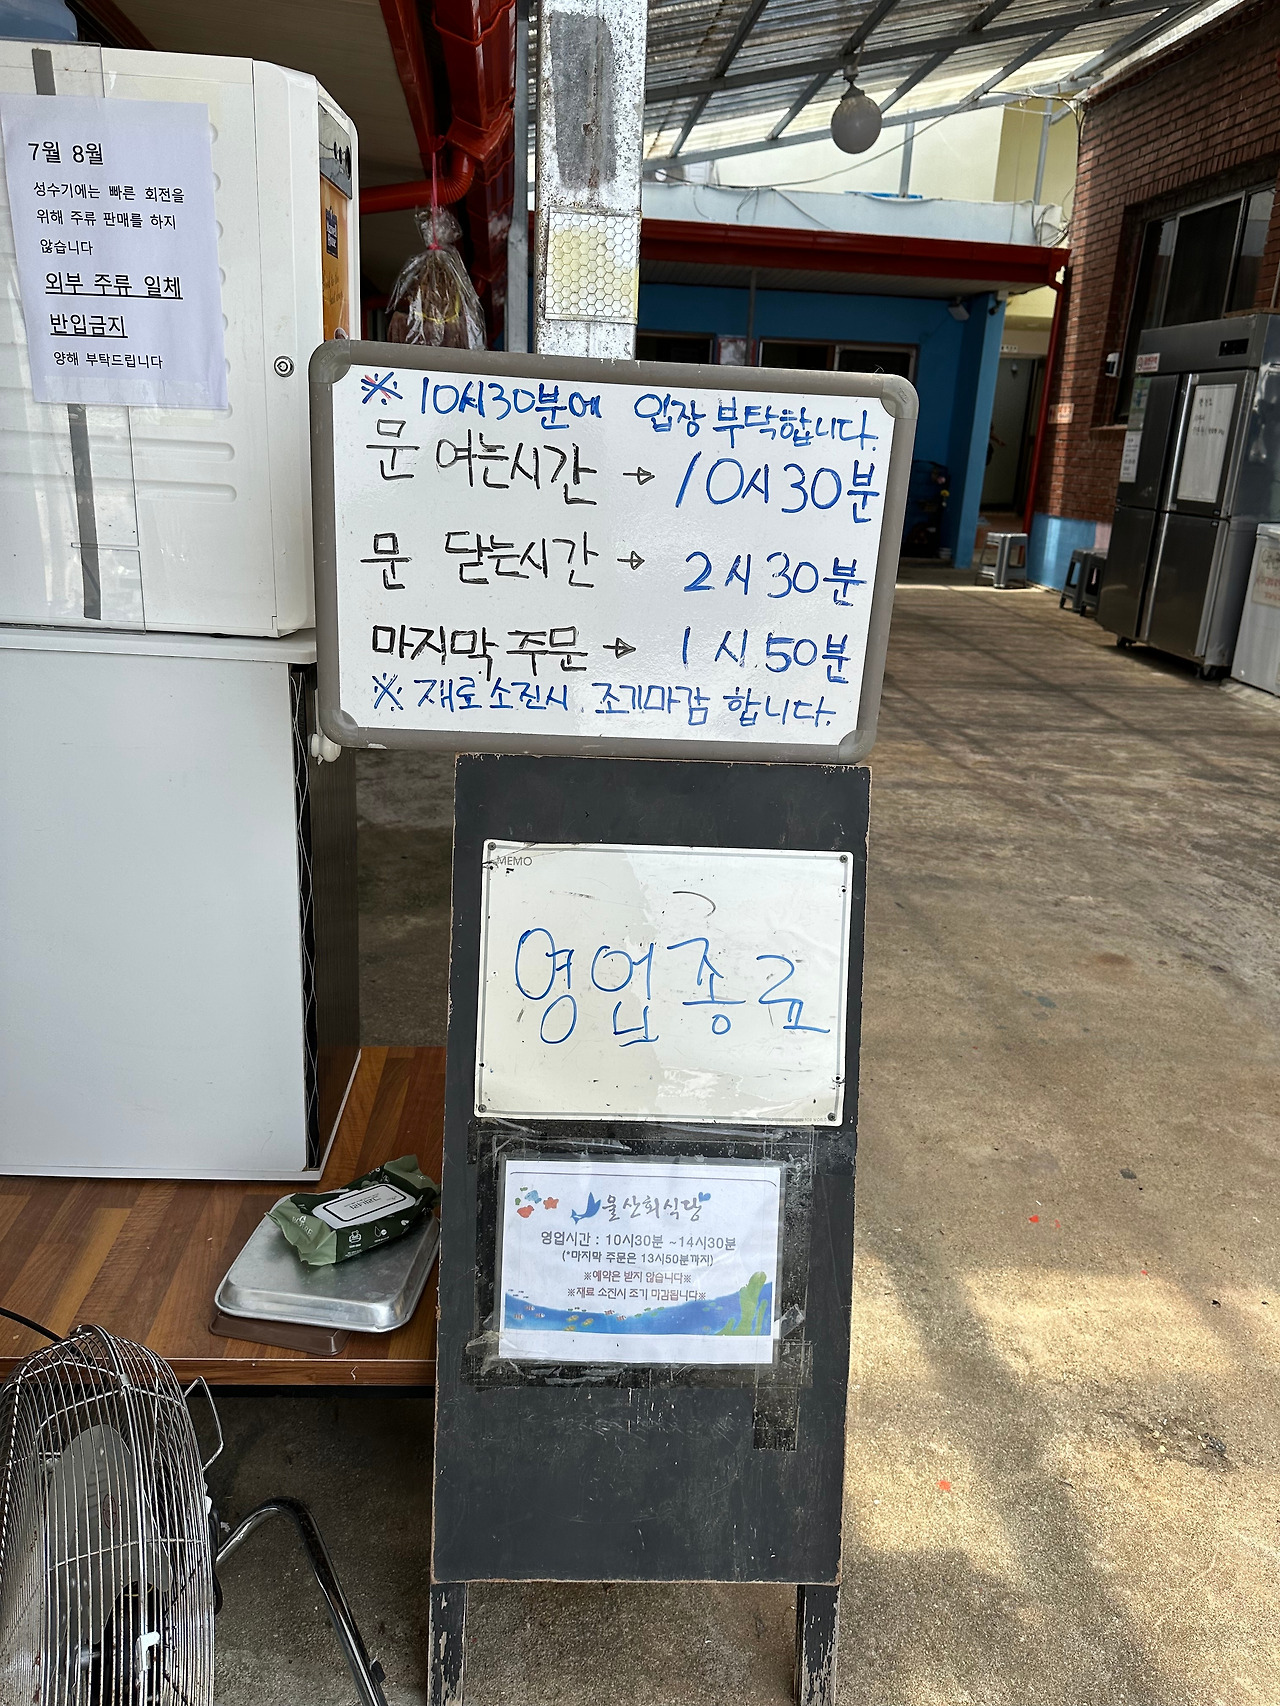 7월 8월
성수기에는 빠른 회전을
위해 주류 판매를 하지
않습니다
외부 주류 일체
반입금지
양해 부탁드립니다
※ 10시30분에 입장 부탁합니다.
문 여는시간 → 10시30분
문 닫는시간 → 2시30분
마지막 주문 → 1시50분
※ 재료소진시 조기마감 합니다.
MEMO
영업종료
울산회식당
영업시간 : 10시30분 ~14시30분
(*마지막 주문은 13시50분까지)
※예약은 받지 않습니다※
※재료 소진시 조기 마감됩니다※